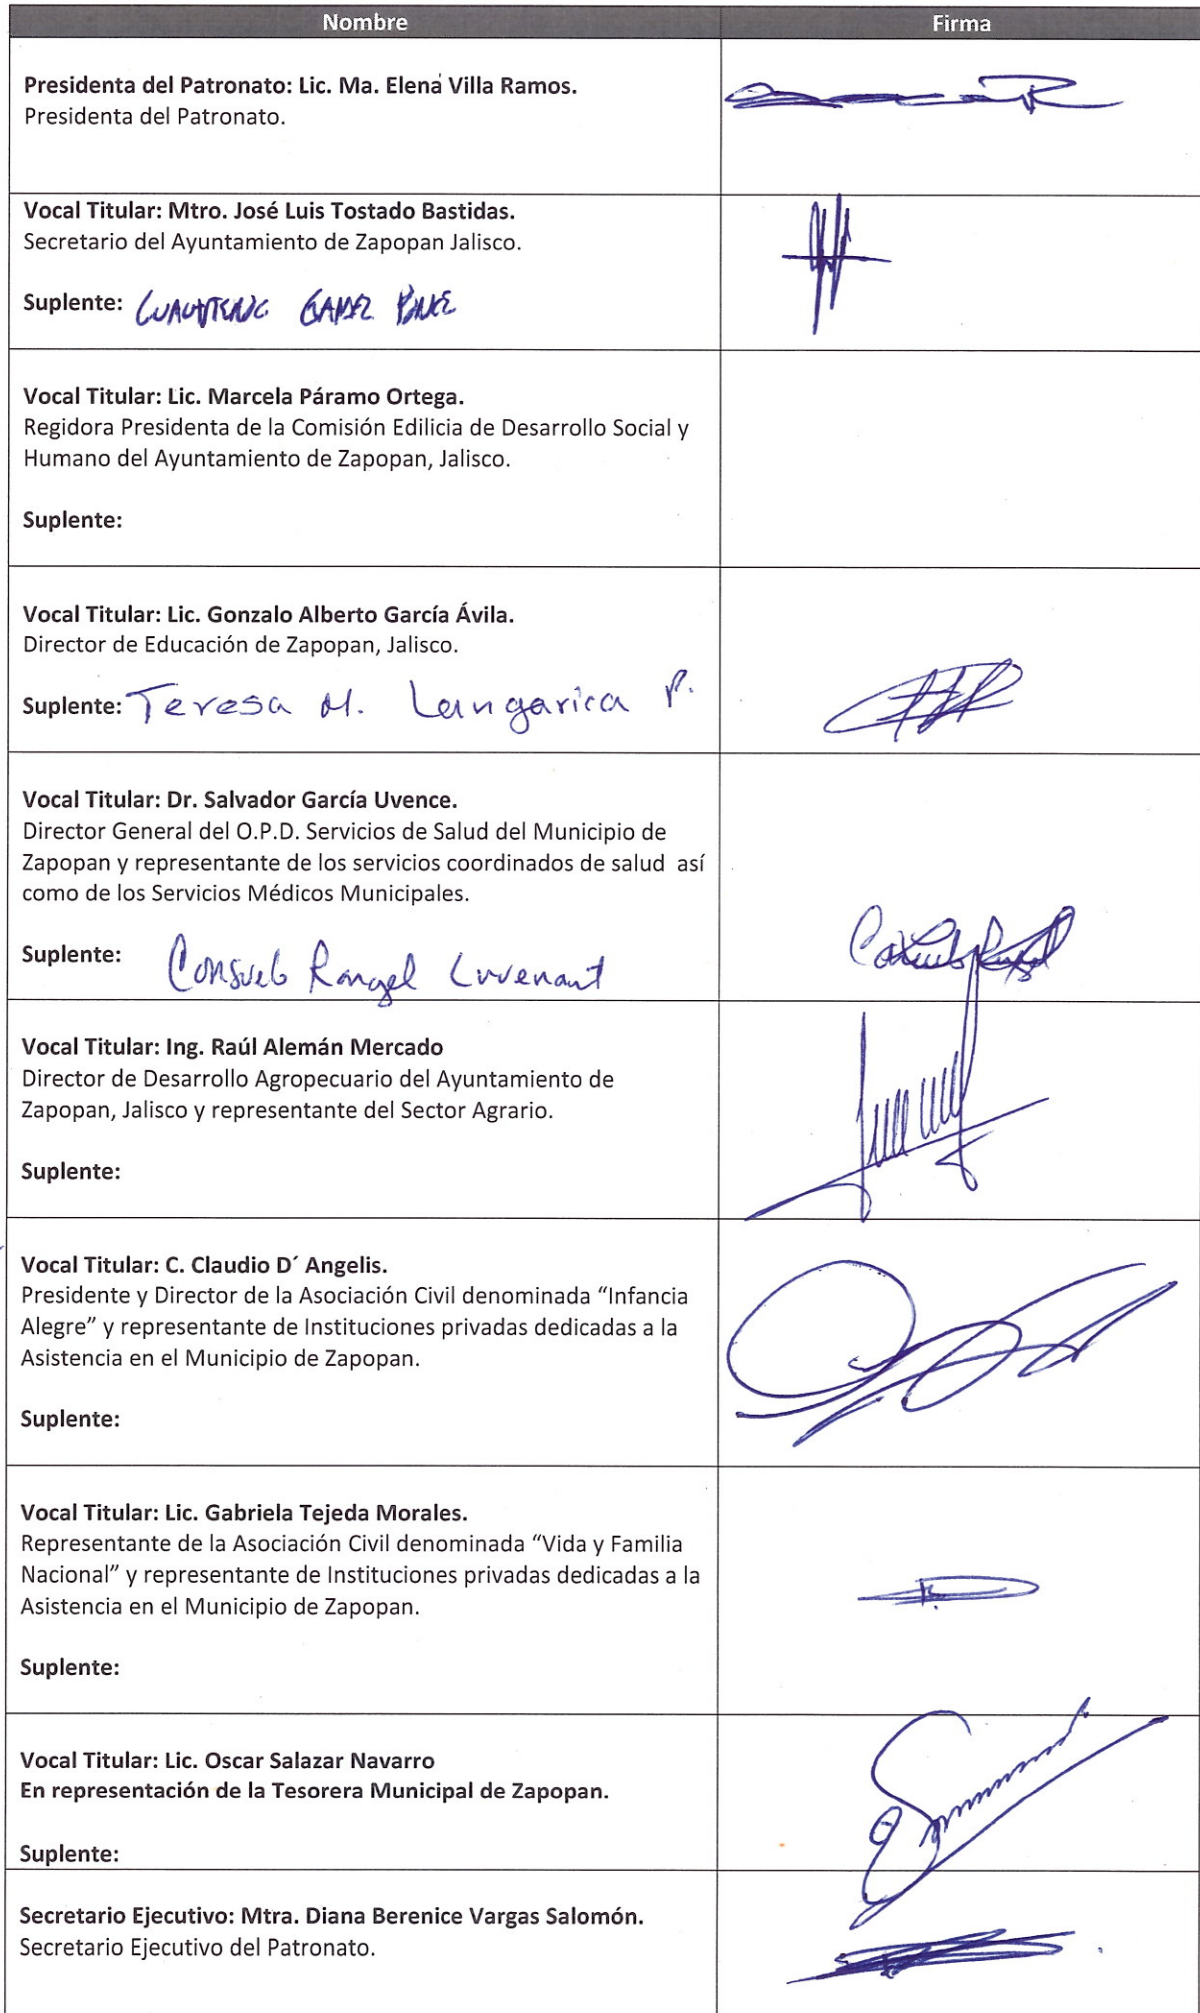 Nombre
Firma
Presidenta del Patronato: Lic. Ma. Elena Villa Ramos.
Presidenta del Patronato.
Vocal Titular: Mtro. José Luis Tostado Bastidas.
Secretario del Ayuntamiento de Zapopan Jalisco.
Suplente:
Vocal Titular: Lic. Marcela Páramo Ortega.
Regidora Presidenta de la Comisión Edilicia de Desarrollo Social y
Humano del Ayuntamiento de Zapopan, Jalisco.
Suplente:
Vocal Titular: Lic. Gonzalo Alberto García Ávila.
Director de Educación de Zapopan, Jalisco.
Suplente: Teresa M. Langarica P.
Vocal Titular: Dr. Salvador García Uvence.
Director General del O.P.D. Servicios de Salud del Municipio de
Zapopan y representante de los servicios coordinados de salud así
como de los Servicios Médicos Municipales.
Suplente: Consuelo Rangel
Vocal Titular: Ing. Raúl Alemán Mercado
Director de Desarrollo Agropecuario del Ayuntamiento de
Zapopan, Jalisco y representante del Sector Agrario.
Suplente:
Vocal Titular: C. Claudio D´ Angelis.
Presidente y Director de la Asociación Civil denominada “Infancia
Alegre” y representante de Instituciones privadas dedicadas a la
Asistencia en el Municipio de Zapopan.
Suplente:
Vocal Titular: Lic. Gabriela Tejeda Morales.
Representante de la Asociación Civil denominada “Vida y Familia
Nacional” y representante de Instituciones privadas dedicadas a la
Asistencia en el Municipio de Zapopan.
Suplente:
Vocal Titular: Lic. Oscar Salazar Navarro
En representación de la Tesorera Municipal de Zapopan.
Suplente:
Secretario Ejecutivo: Mtra. Diana Berenice Vargas Salomón.
Secretario Ejecutivo del Patronato.